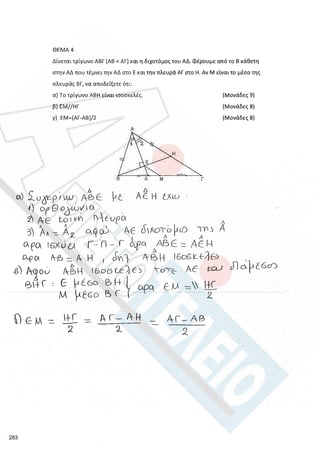 ΘΕΜΑ 4
Δίνεται τρίγωνο ΑΒΓ (ΑΒ < ΑΓ) και η διχοτόμος του ΑΔ. Φέρουμε από το Β κάθετη
στην ΑΔ που τέμνει την ΑΔ στο Ε και την πλευρά ΑΓ στο Η. Αν Μ είναι το μέσο της
πλευράς ΒΓ, να αποδείξετε ότι:
α) Το τρίγωνο ΑΒΗ είναι ισοσκελές. (Μονάδες 9)
β) ΕΜ//ΗΓ (Μονάδες 8)
γ) ΕΜ=(ΑΓ-ΑΒ)/2 (Μονάδες 8)
Α
1 2
Η
Ε
Β Δ Μ Γ
α) Συγκρίνω ΑΒΕ με ΑΕΗ έχω :
1) ορθογώνια
2) ΑΕ κοινή πλευρά
3) Α₁ = Α₂ αφού ΑΕ διχοτόμο της Α
αρα ισχύει Γ-Π-Γ άρα ΑΒΕ = ΑΕΗ
αρα ΑΒ = ΑΗ , δηλ ΑΒΗ ισοσκελές
β) Αφού ΑΒΗ ισοσκελές τότε ΑΕ και διάμεσος
ΒΗΓ : Ε μέσο ΒΗ
Μ μέσο ΒΓ αρα ΕΜ =\\ ΗΓ/2
γ) ΕΜ = ΗΓ/2 = ΑΓ - ΑΗ/2 = ΑΓ - ΑΒ/2
283